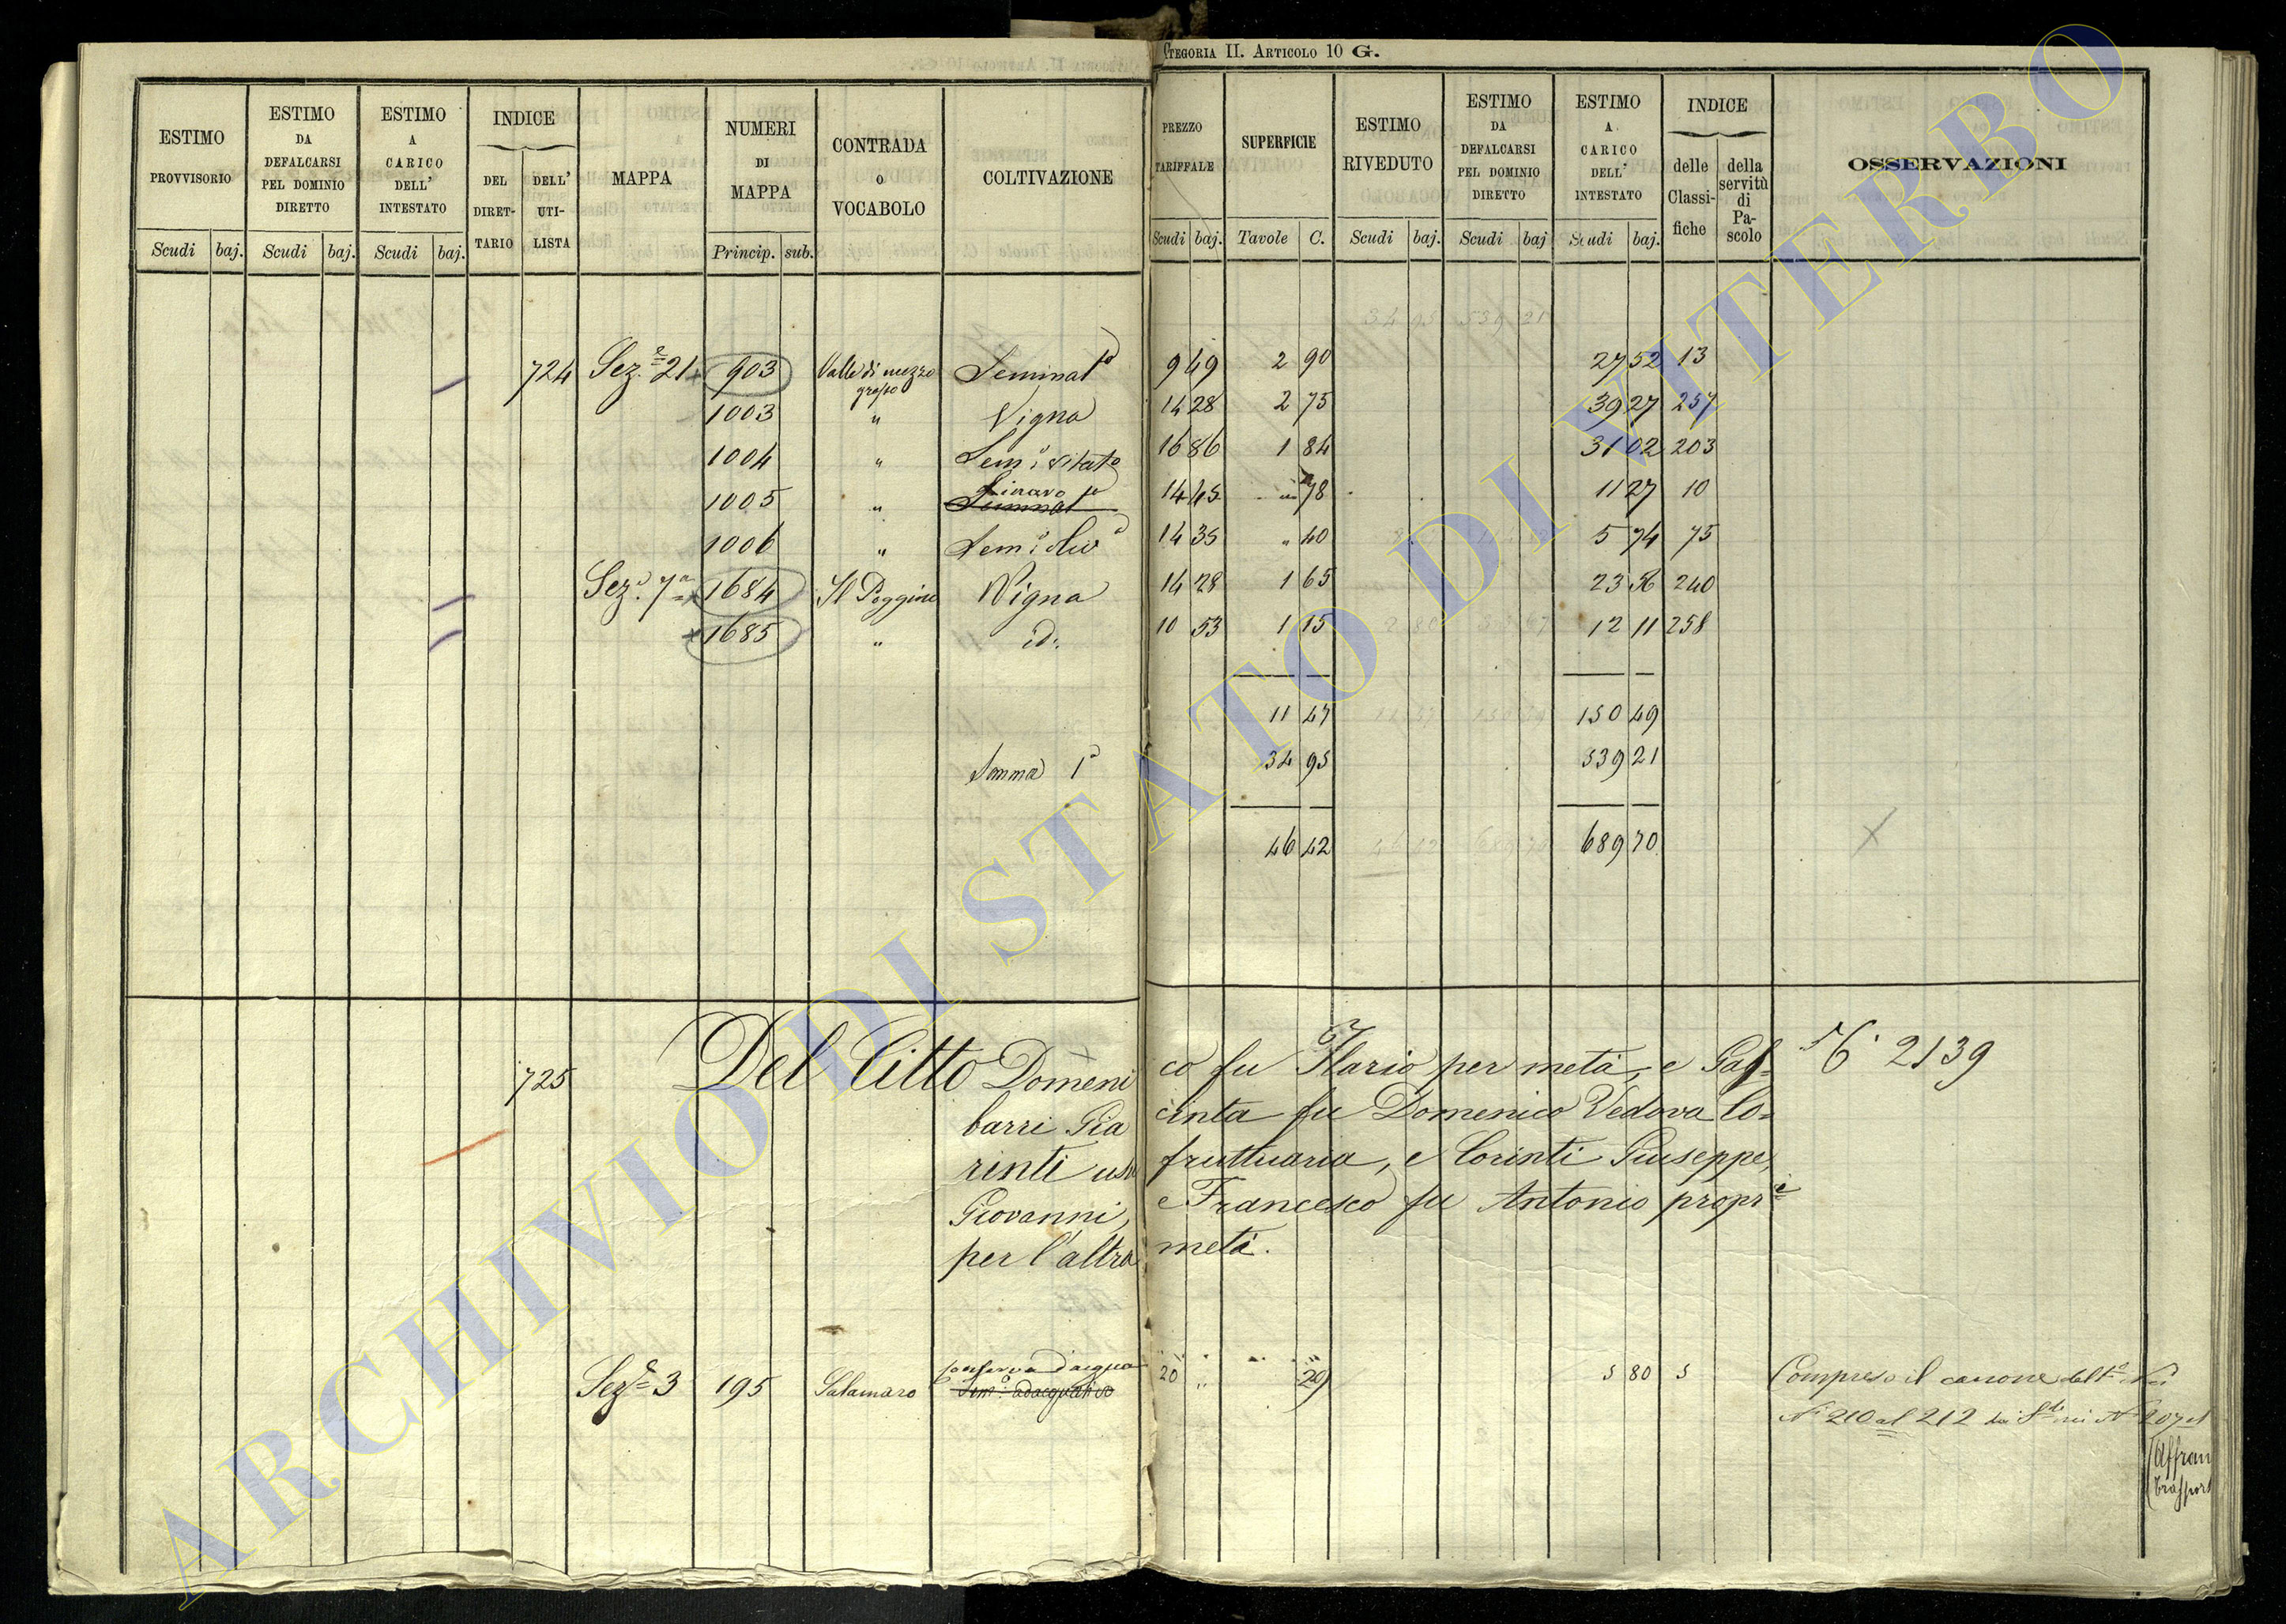 CATEGORIA II. ARTICOLO 10 G.
ESTIMO PROVVISORIO Scudi baj.
ESTIMO DA DEFALCARSI PEL DOMINIO DIRETTO Scudi baj.
ESTIMO A CARICO DELL' INTESTATO Scudi baj.
INDICE DEL DIRETTARIO DELL' UTILISTA
MAPPA
NUMERI DI MAPPA Princip. sub.
CONTRADA O VOCABOLO
COLTIVAZIONE
PREZZO TARIFFALE Scudi baj.
SUPERFICIE Tavole C.
ESTIMO RIVEDUTO Scudi baj.
ESTIMO DA DEFALCARSI PEL DOMINIO DIRETTO Scudi baj
ESTIMO A CARICO DELL' INTESTATO Scudi baj.
INDICE delle Classifiche della servitù di Pascolo
OSSERVAZIONI
724 Sez.e 21 903 Valle di mezzo grosso Seminato 9 49 2 90 27 52 13
1003 " Vigna 14 28 2 75 39 27 257
1004 " Sem.o vitato 16 86 1 84 31 02 203
1005 " 14 45 " 78 11 27 10
1006 " Sem.o oliv.o 14 35 " 40 5 74 75
Sez.e 7a 1684 Il Poggino Vigna 14 28 1 65 23 56 240
1685 " id: 10 53 1 15 12 11 258
11 47 150 49
Somma 1a 34 95 539 21
46 42 689 70
725 Del Citto Domenico fu Ilario per metà, e Gas= N. 2139
barri Giacinta fu Domenico Vedova Co=
rinti usufruttuaria, e Corinti Giuseppe,
Giovanni, e Francesco fu Antonio propr.i
per l'altra metà.
Sez.e 3 195 Salamaro Conserva d'acqua 20 " " 29 5 80 5 Compreso il canone
Sem.o adacquativo
N. 210 al 212
Affran
Trasport
ARCHIVIO DI STATO DI VITERBO